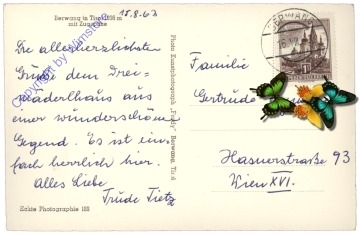 Berwang in Tirol 1336 m
mit Zugspitze
15.8.63
Die allerherzlichsten
Grüße dem Drei-
mäderlhaus aus
einer wunderschönen
Gegend. Es ist ein-
fach herrlich hier.
Alles Liebe
Trude Tietz
Echte Photographie 188
Photo Kunstphotograph „Fredy" Berwang, Tirol
BERWANG
Familie
Gertrude
Hasnerstraße 93
Wien XVI.
Copyright by